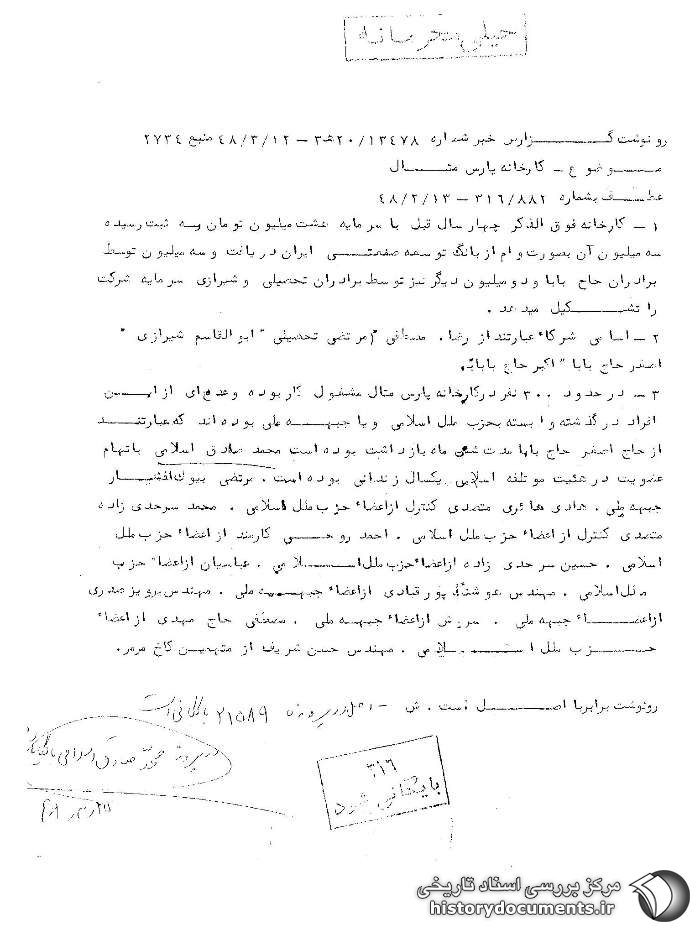 خیلی محرمانه
رونوشت گـــزارس خبر شماره ۲۰/۱۳۴۷۸ﻫ۳ – ۴۸/۳/۱۲ منبع ۲۷۳۴
مـــوضوع – کارخانه پارس متـــال
عطـــف بشماره ۳۱۶/۸۸۲ – ۴۸/۲/۱۳
۱ – کارخانه فوق الذکر چهار سال قبل با سرمایه هشت میلیون تومان به ثبت رسیده
سه میلیون آن بصورت وام از بانک توسعه صنعتـــی ایران دریافت و سه میلیون توسط
برادران حاج بابا و دو میلیون دیگر نیز توسط برادران تحصیلی و شیرازی سرمایه شرکت
را تشـــکیل میدهد .
۲ – اسامی شرکاء عبارتند از رضا، مصطفی مرتضی تحصیلی " ابوالقاسم شیرازی "
اصغر حاج بابا " اکبر حاج بابا
۳ – در حدود ۳۰۰ نفر در کارخانه پارس متال مشغول کار بوده و عده‌ای از ایـــن
افراد در گذشته وابسته بحزب ملل اسلامی و یا جبهـــه ملی بوده اند که عبارتنـــد
از حاج اصغر حاج بابا مدت شش ماه بازداشت بوده است محمد صادق اسلامی باتهام
عضویت در هئیت موتلفه اسلامی یکسال زندانی بوده است . مرتضی بیوك افشـــار
جبهه ملی . هادی هائری متصدی کنترل از اعضاء حزب ملل اسلامی . محمد سرحدی زاده
متصدی کنترل از اعضاء حزب ملل اسلامی . احمد روحـــی کارمند از اعضاء حزب ملل
اسلامی . حسین سرحدی زاده از اعضاء حزب ملل اســـلامی . عباسیان از اعضاء حزب
ملل اسلامی . مهندس هوشنگ پورقبادی از اعضاء جبهـــه ملی . مهندس پرویز صدری
از اعضـــاء جبهه ملی . سروش از اعضاء جبهـــه ملی . مصطفی حاج مهدی از اعضاء
حـــزب ملل اســـلامی . مهندس حسن شریف از متهمین کاخ مرمر.
رونوشت برابر با اصـــل است . ش – اصل در پرونده ۲۱۵۸۹ بایگانی است
در پرونده محمد صادق اسلامی
۳۱۶
بایگانی شود
مرکز بررسی اسناد تاریخی
historydocuments.ir